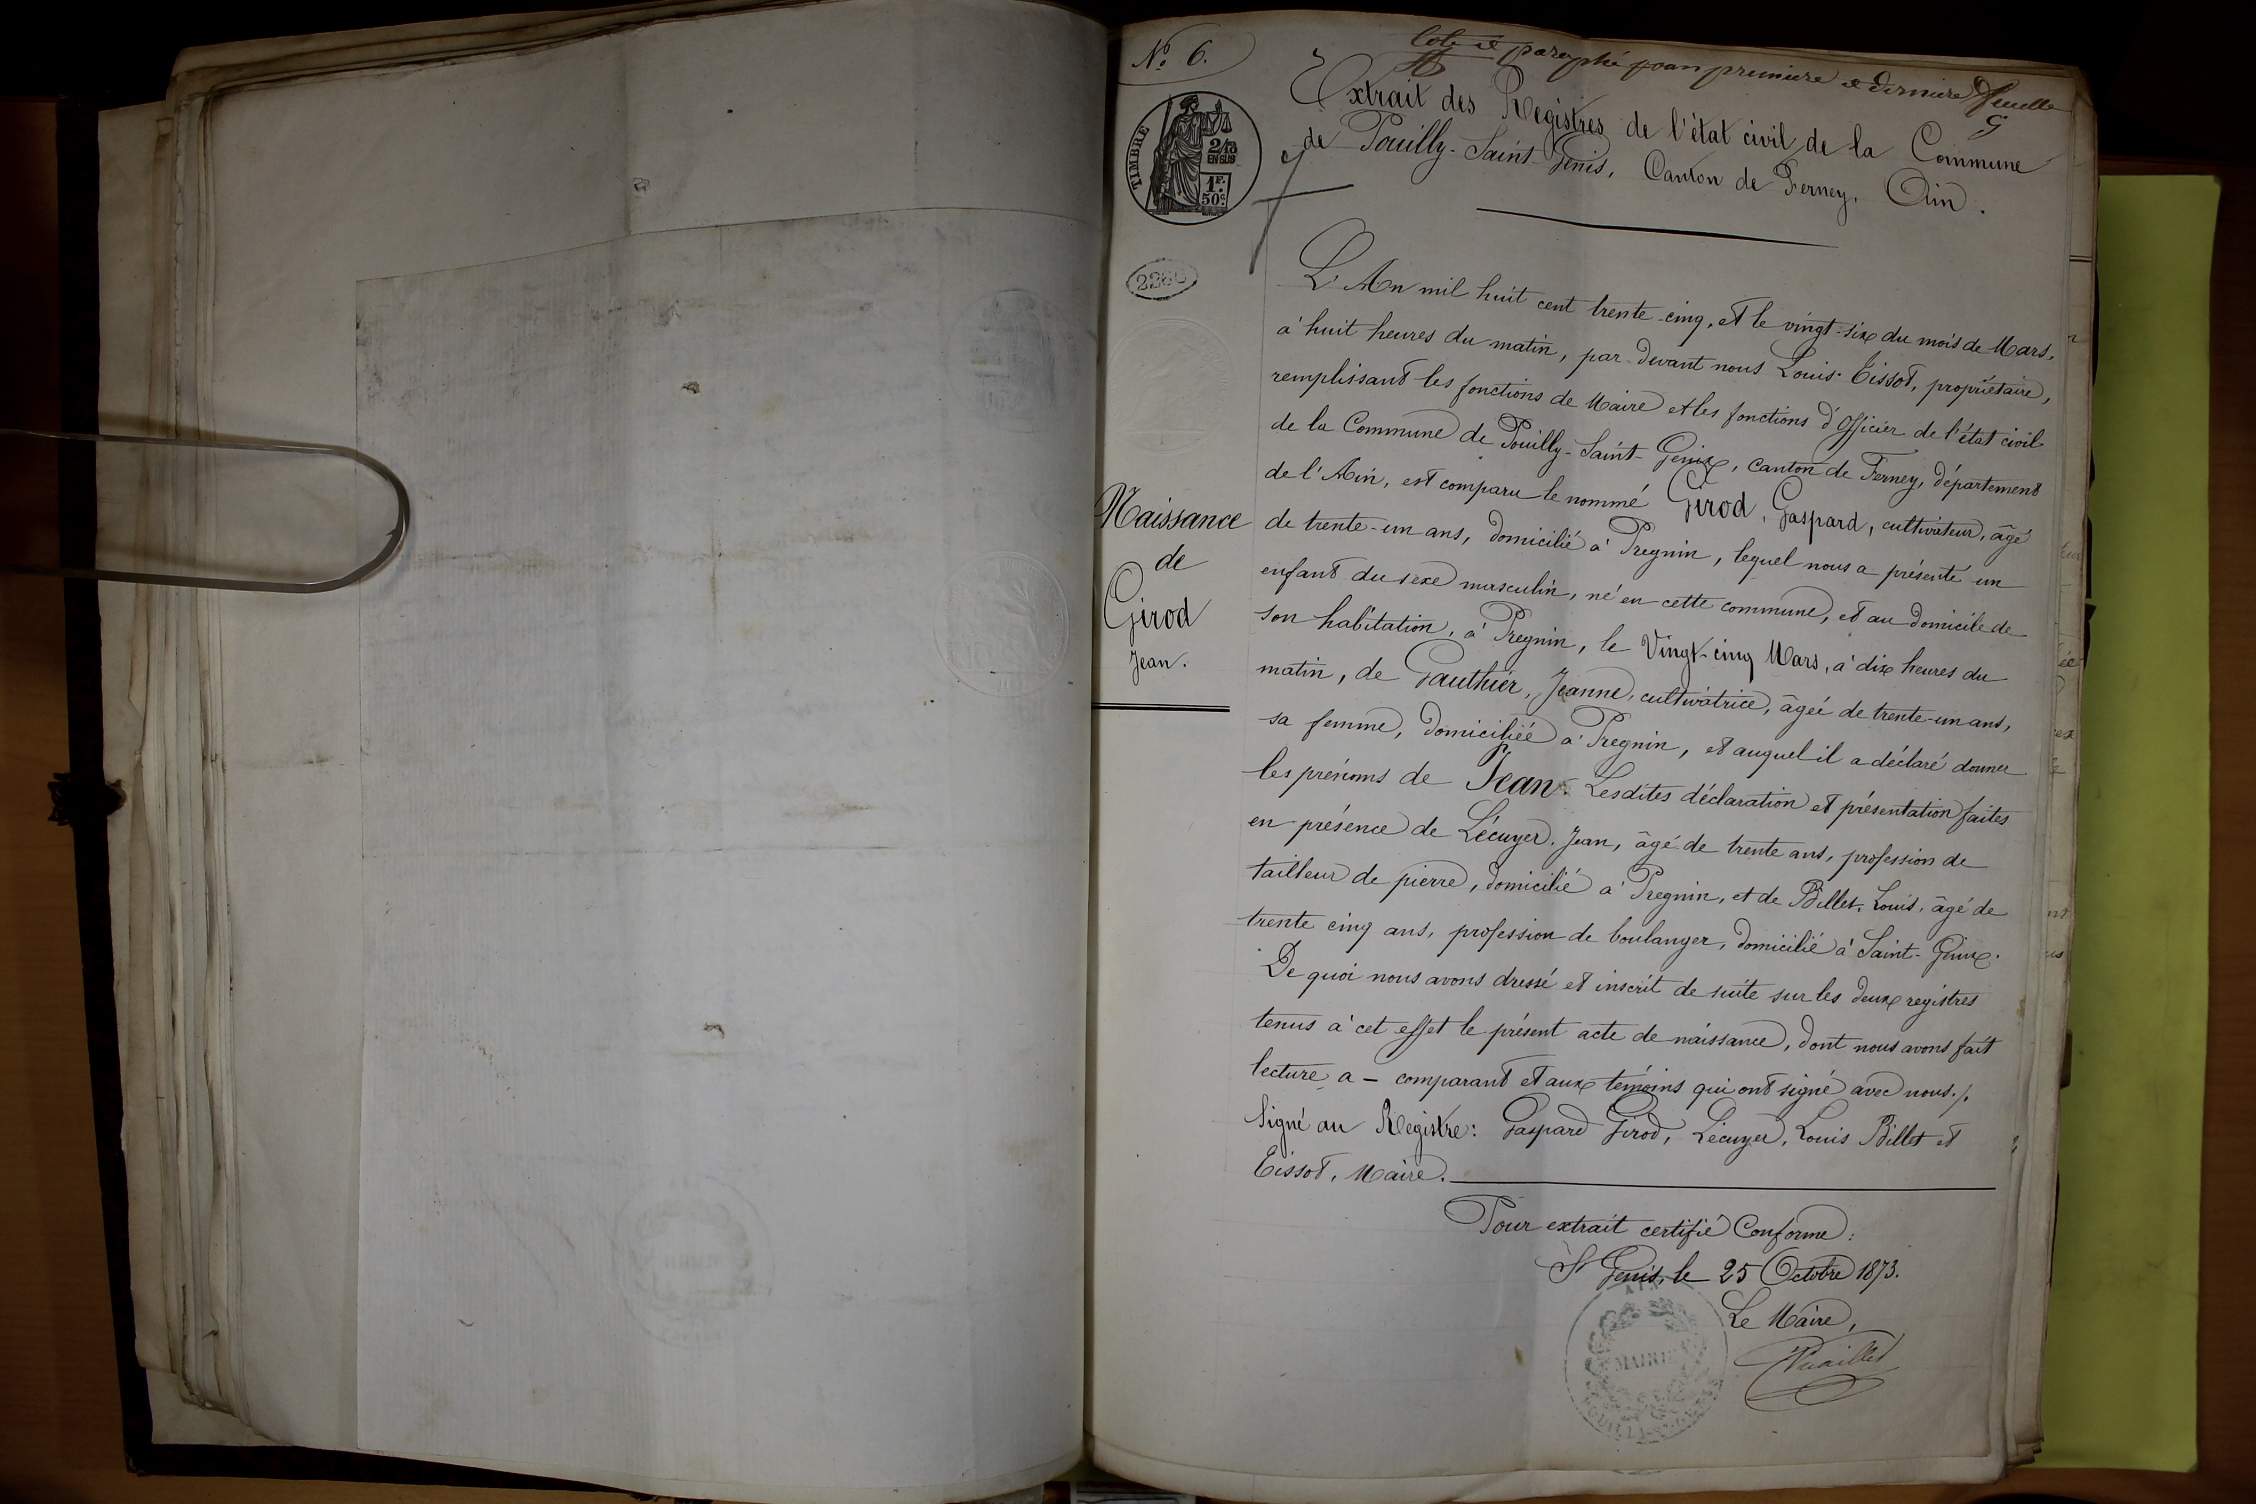 N° 6.
Coté et paraphé pour première et dernière feuille
G
Extrait des Registres de l'état civil de la Commune
de Pouilly-Saint-Genis, Canton de Ferney, Ain.
TIMBRE
2/10
EN SUS
1F.
50c
L'An mil huit cent trente-cinq, et le vingt-six du mois de Mars,
à huit heures du matin, par-devant nous Louis Tissot, propriétaire,
remplissant les fonctions de Maire et les fonctions d'Officier de l'état civil
de la Commune de Pouilly-Saint-Genix, canton de Ferney, département
de l'Ain, est comparu le nommé Girod, Gaspard, cultivateur, âgé
de trente-un ans, domicilié à Pregnin, lequel nous a présenté un
enfant du sexe masculin, né en cette commune, et au domicile de
son habitation, à Pregnin, le Vingt-cinq Mars, à dix heures du
matin, de Gauthier, Jeanne, cultivatrice, âgée de trente-un ans,
sa femme, domiciliée à Pregnin, et auquel il a déclaré donner
les prénoms de Jean. Lesdites déclaration et présentation faites
en présence de Lécuyer, Jean, âgé de trente ans, profession de
tailleur de pierre, domicilié à Pregnin, et de Billet, Louis, âgé de
trente cinq ans, profession de boulanger, domicilié à Saint-Genix.
De quoi nous avons dressé et inscrit de suite sur les deux registres
tenus à cet effet le présent acte de naissance, dont nous avons fait
lecture a - comparant et aux témoins qui ont signé avec nous ./.
Signé au Registre: Gaspard Girod, Lécuyer, Louis Billet et
Tissot, Maire.
Naissance
de
Girod
Jean.
Pour extrait certifié Conforme:
St Genis, le 25 Octobre 1873.
Le Maire,
MAIRIE